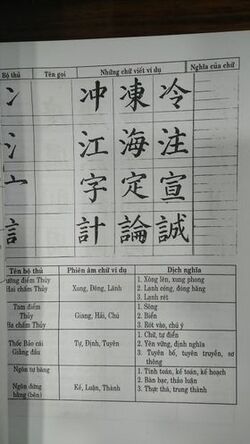 Bộ thủ Tên gọi Những chữ viết ví dụ Nghĩa của chữ
冫 冲 凍 冷
氵 江 海 注
宀 字 定 宣
言 計 論 誠
Tên bộ thủ Phiên âm chữ ví dụ Dịch nghĩa
chấm Thủy Xung, Đông, Lãnh 1. Xông lên, xung phong
2. Lạnh cóng, đóng băng
3. Lạnh rét
Tam điểm Thủy Giang, Hải, Chú 1. Sông
2. Biển
Ba chấm Thủy 3. Rót vào, chú ý
Thốc Bảo cái Tự, Định, Tuyên 1. Chữ, tự điển
Giằng đầu 2. Yên vững, định nghĩa
3. Tuyên bố, tuyên truyền, sơ thông
Ngôn tự bàng Kế, Luận, Thành 1. Tính toán, kế toán, kế hoạch
Ngôn đứng bàng (bên) 2. Bàn bạc, thảo luận
3. Thực thà, trung thành